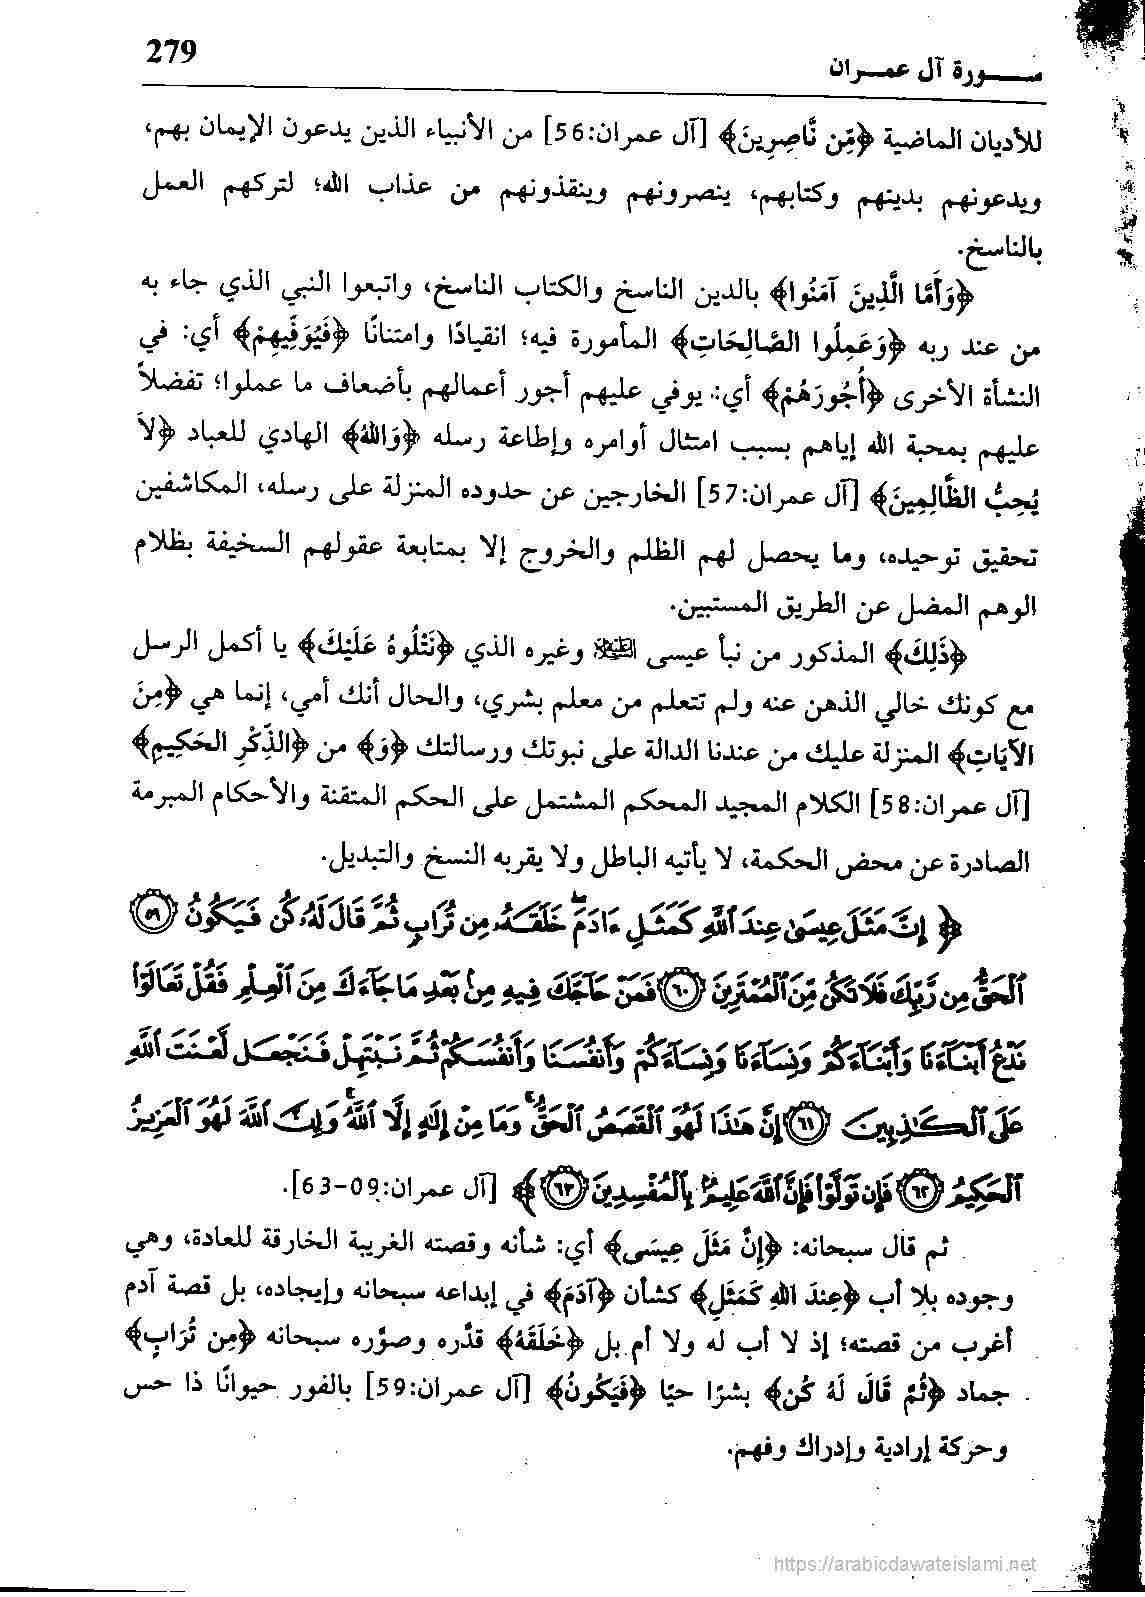 279
سـورة آل عمـران
للأديان الماضية ﴿مِّن نَّاصِرِينَ﴾ [آل عمران:56] من الأنبياء الذين يدعون الإيمان بهم،
ويدعونهم بدينهم وكتابهم، ينصرونهم وينقذونهم من عذاب الله؛ لتركهم العمل
بالناسخ.
﴿وَأَمَّا الَّذِينَ آمَنُوا﴾ بالدين الناسخ والكتاب الناسخ، واتبعوا النبي الذي جاء به
من عند ربه ﴿وَعَمِلُوا الصَّالِحَاتِ﴾ المأمورة فيه؛ انقيادًا وامتنانًا ﴿فَيُوَفِّيهِمْ﴾ أي: في
النشأة الأخرى ﴿أُجُورَهُمْ﴾ أي: يوفي عليهم أجور أعمالهم بأضعاف ما عملوا؛ تفضلاً
عليهم بمحبة الله إياهم بسبب امتثال أوامره وإطاعة رسله ﴿وَاللهُ﴾ الهادي للعباد ﴿لاَ
يُحِبُّ الظَّالِمِينَ﴾ [آل عمران:57] الخارجين عن حدوده المنزلة على رسله، المكاشفين
تحقيق توحيده، وما يحصل لهم الظلم والخروج إلا بمتابعة عقولهم السخيفة بظلام
الوهم المضل عن الطريق المستبين.
﴿ذَلِكَ﴾ المذكور من نبأ عيسى الَّتَلِيْكُلْ وغيره الذي ﴿نَتْلُوهُ عَلَيْكَ﴾ يا أكمل الرسل
مع كونك خالي الذهن عنه ولم تتعلم من معلم بشري، والحال أنك أمي، إنما هي ﴿مِنَ
الآيَاتِ﴾ المنزلة عليك من عندنا الدالة على نبوتك ورسالتك ﴿وَ﴾ من ﴿الذِّكْرِ الحَكِيمِ﴾
[آل عمران:58] الكلام المجيد المحكم المشتمل على الحكم المتقنة والأحكام المبرمة
الصادرة عن محض الحكمة، لا يأتيه الباطل ولا يقربه النسخ والتبديل.
﴿ إِنَّ مَثَلَ عِيسَىٰ عِندَ ٱللَّهِ كَمَثَلِ ءَادَمَ ۖ خَلَقَهُۥ مِن تُرَابٍ ثُمَّ قَالَ لَهُۥ كُن فَيَكُونُ ٥٩
ٱلْحَقُّ مِن رَّبِّكَ فَلَا تَكُن مِّنَ ٱلْمُمْتَرِينَ ٦٠ فَمَنْ حَآجَّكَ فِيهِ مِنۢ بَعْدِ مَا جَآءَكَ مِنَ ٱلْعِلْمِ فَقُلْ تَعَالَوْا
نَدْعُ أَبْنَآءَنَا وَأَبْنَآءَكُمْ وَنِسَآءَنَا وَنِسَآءَكُمْ وَأَنفُسَنَا وَأَنفُسَكُمْ ثُمَّ نَبْتَهِلْ فَنَجْعَل لَّعْنَتَ ٱللَّهِ
عَلَى ٱلْكَٰذِبِينَ ٦١ إِنَّ هَٰذَا لَهُوَ ٱلْقَصَصُ ٱلْحَقُّ ۚ وَمَا مِنْ إِلَٰهٍ إِلَّا ٱللَّهُ ۚ وَإِنَّ ٱللَّهَ لَهُوَ ٱلْعَزِيزُ
ٱلْحَكِيمُ ٦٢ فَإِن تَوَلَّوْا فَإِنَّ ٱللَّهَ عَلِيمٌۢ بِٱلْمُفْسِدِينَ ٦٣ ﴾ [آل عمران:09-63].
ثم قال سبحانه: ﴿إِنَّ مَثَلَ عِيسَى﴾ أي: شأنه وقصته الغريبة الخارقة للعادة، وهي
وجوده بلا أب ﴿عِندَ اللهِ كَمَثَلِ﴾ كشأن ﴿آدَمَ﴾ في إبداعه سبحانه وإيجاده، بل قصة آدم
أغرب من قصته؛ إذ لا أب له ولا أم بل ﴿خَلَقَهُ﴾ قدَّره وصوَّره سبحانه ﴿مِن تُرَابٍ﴾
جماد ﴿ثُمَّ قَالَ لَهُ كُن﴾ بشرًا حيًا ﴿فَيَكُونُ﴾ [آل عمران:59] بالفور حيوانًا ذا حس
وحركة إرادية وإدراك وفهم.
https://arabicdawateislami.net